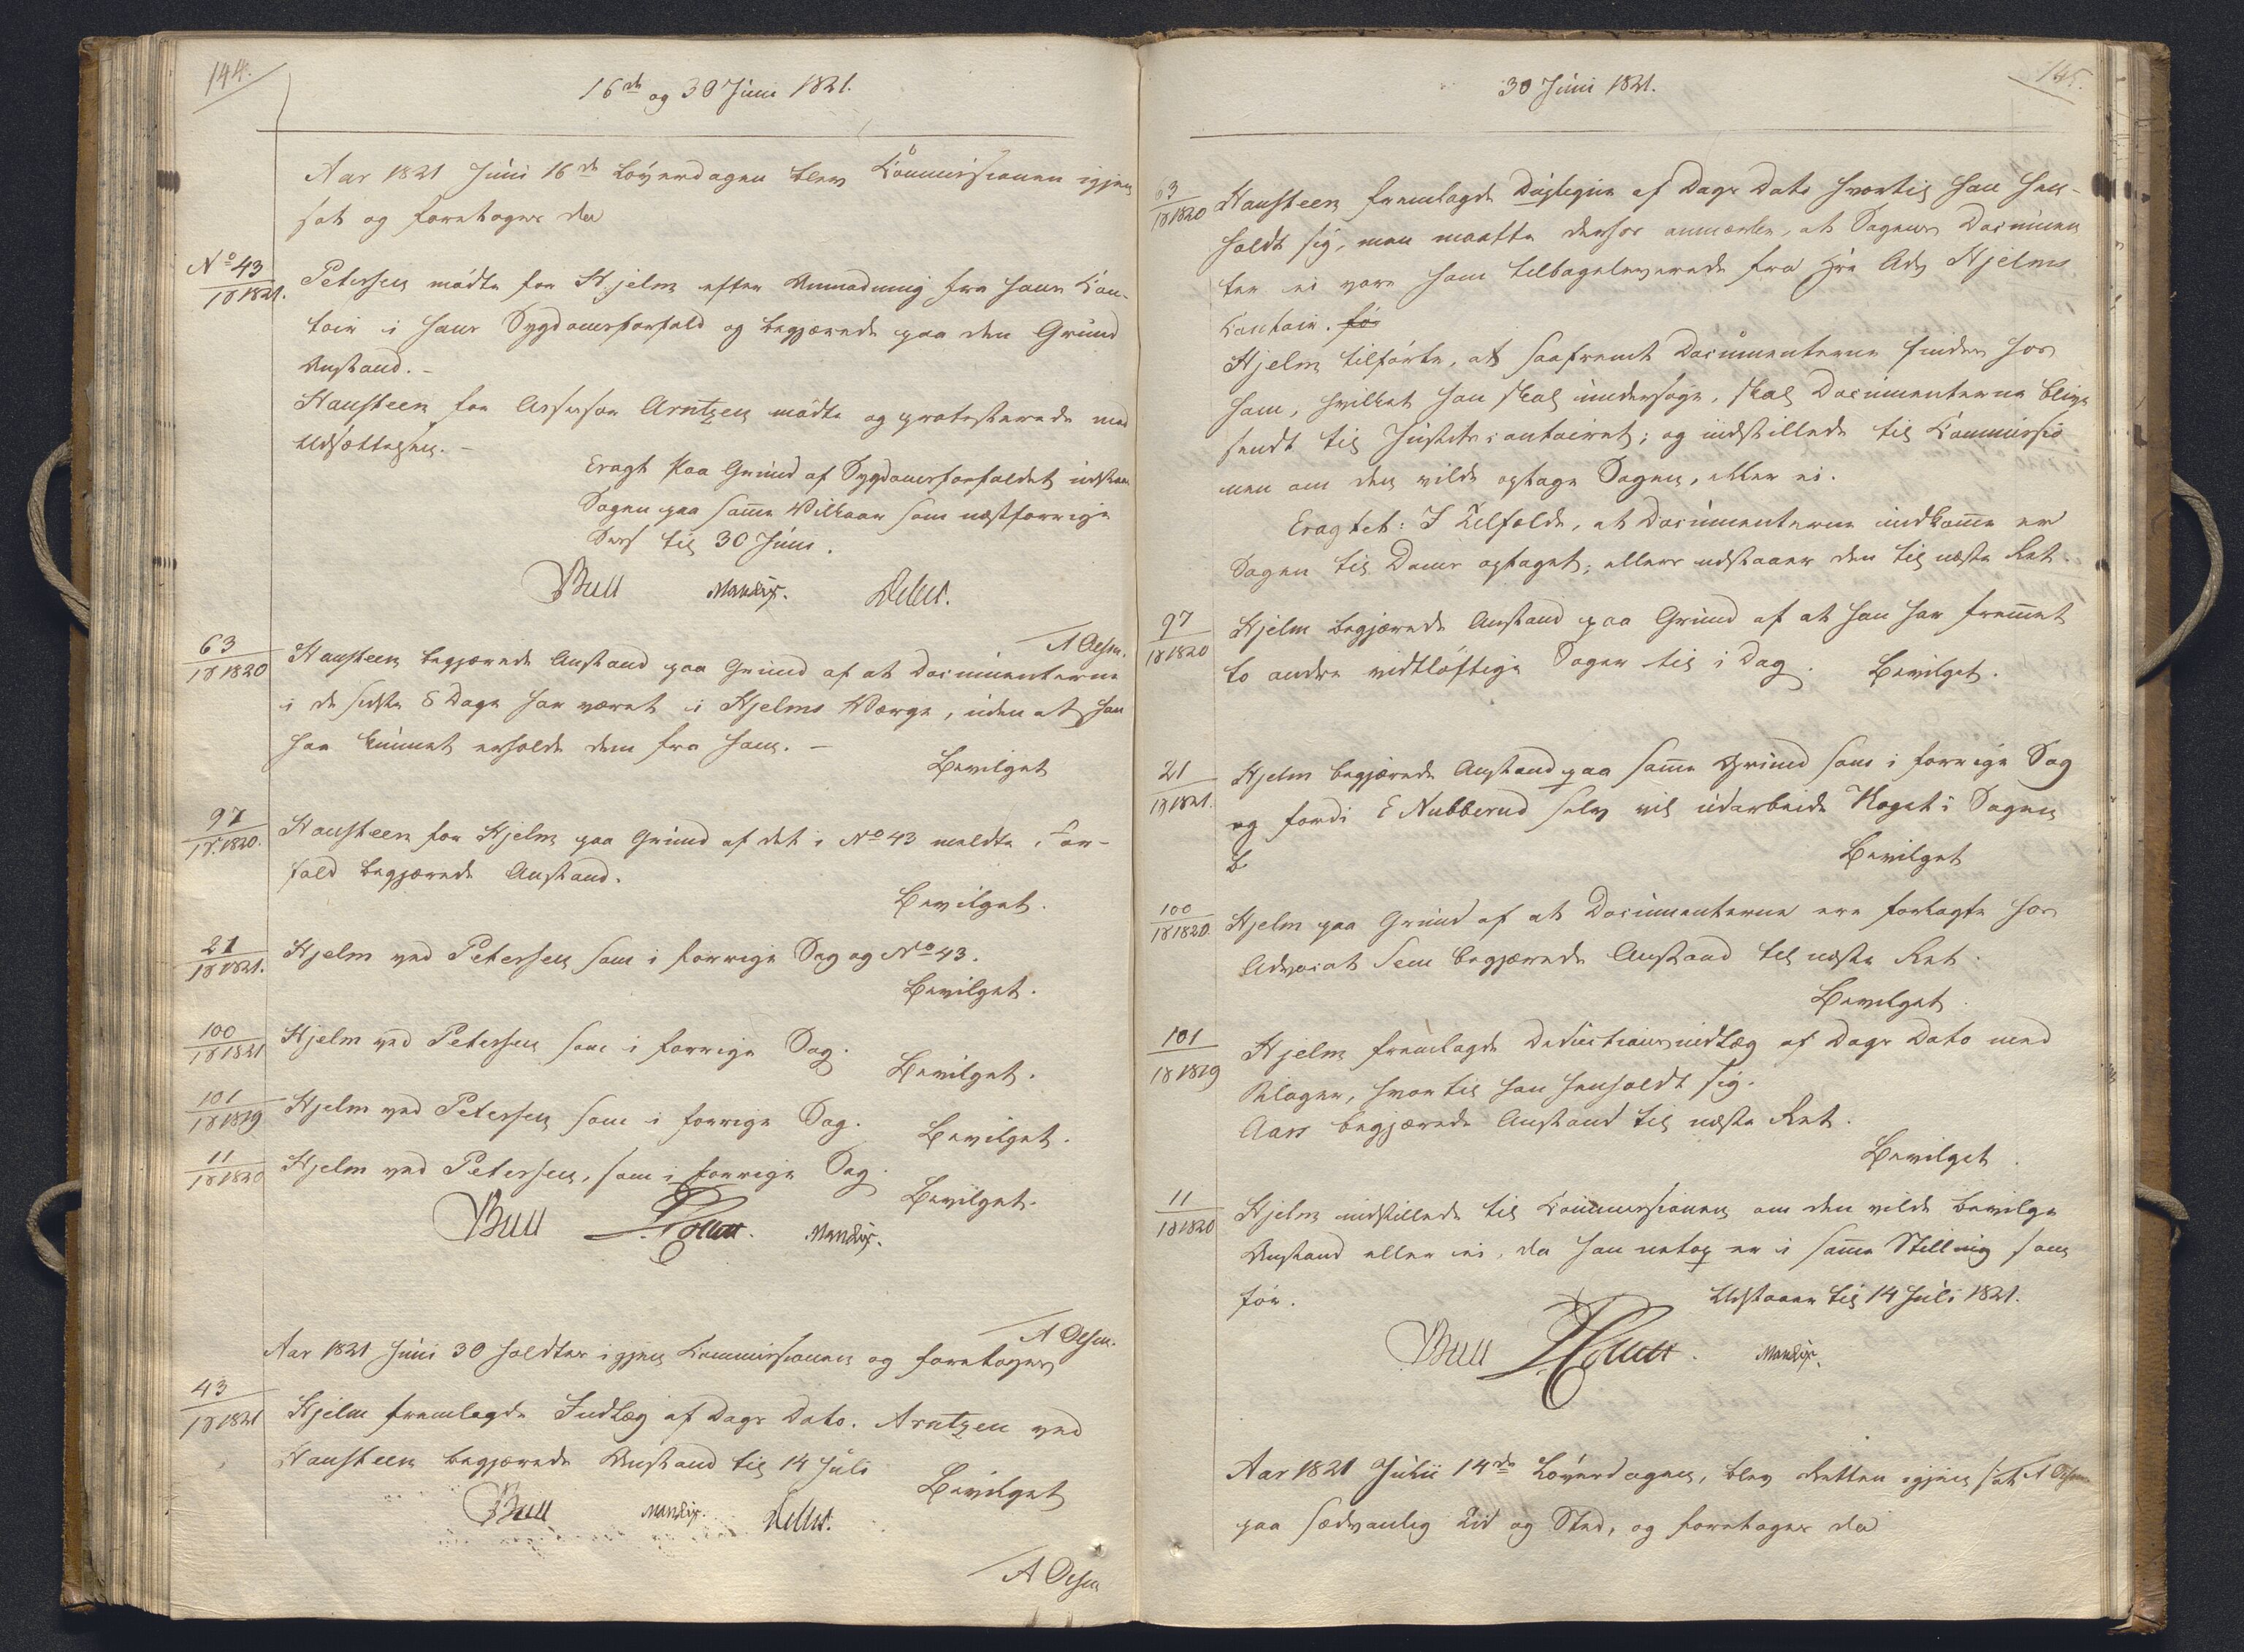 144.
16de og 30 Juni 1821.
Aar 1821 Juni 16de Løverdagen blev Commissionen igjen
sat og foretoges da
No 43
18 1821.
Petersen mødte for Hjelm efter Anmodning fra hans Con-
toir i hans Sygdomsforfald og begjærede paa den Grund
Anstand. -
Hansteen for Assessor Arntzen mødte og protesterede mod
Udsættelsen. -
Eragt Paa Grund af Sygdomsforfaldet udstaaer
Sagen paa samme Vilkaar som næstforrige
Sess til 30 Juni.
Bull Mandix.
A Olsen.
63
18 1820
Hansteen begjærede Anstand paa Grund af at Documenterne
i de sidste 8 Dage har været i Hjelms Værge, uden at han
har kunnet erholde dem fra ham. -
Bevilget
97
18 1820.
Hansteen for Hjelm paa Grund af det i No 43 meldte For-
fald begjærede Anstand.
Bevilget.
21
18 1821.
Hjelm ved Petersen som i forrige Sag og No 43.
Bevilget.
100
18 1821
Hjelm ved Petersen som i forrige Sag.
Bevilget.
101
18 1819
Hjelm ved Petersen som i forrige Sag.
Bevilget.
11
18 1820
Hjelm ved Petersen, som i forrige Sag.
Bevilget.
Bull Mandix.
A Olsen.
Aar 1821 Juni 30 holdtes igjen Commissionen og foretoges
43
18 1821
Hjelm fremlagde Indlæg af Dags Dato. Arntzen ved
Hansteen begjærede Anstand til 14 Juli
Bevilget
Bull Mandix.
A Olsen
145.
30 Juni 1821.
63
18 1820
Hansteen fremlagde Duplique af Dags Dato hvortil han hen-
holdt sig, men maatte derhos anmærke, at Sagens Documen
ter ei vare ham tilbageleverede fra Hr Adv Hjelms
Contoir. før
Hjelm tilførte, at saafremt Documenterne findes hos
ham, hvilket han skal undersøge, skal Documenterne blive
sendt til Justitscontoiret; og indstillede til Commissio
nen om den vilde optage Sagen, eller ei.
Eragtet: I Tilfælde, at Documenterne indkomme er
Sagen til Doms optaget; ellers udstaaer den til næste Ret.
97
18 1820
Hjelm begjærede Anstand paa Grund af at han har fremmet
to andre vidtløftige Sager til i Dag. Bevilget.
21
18 1821.
Hjelm begjærede Anstand paa samme Grund som i forrige Sag
og fordi E Nubberud selv vil udarbeide Noget i Sagen
B
Bevilget
100
18 1820.
Hjelm paa Grund af at Documenterne ere forlagte hos
Advocat Sem begjærede Anstand til næste Ret.
Bevilget.
101
18 1819
Hjelm fremlagde Deductionsindlæg af Dags Dato med
Bilager, hvortil han henholdt sig.
Aars begjærede Anstand til næste Ret.
Bevilget.
11
18 1820
Hjelm indstillede til Commissionen om den vilde bevilge
Anstand eller ei, da han netop er i samme Stilling som
før.
Udstaaer til 14 Juli 1821.
Bull Mandix.
A Olsen
Aar 1821 Julii 14de Løverdagen, blev Retten igjen sat
paa sædvanlig Tid og Sted, og foretoges da